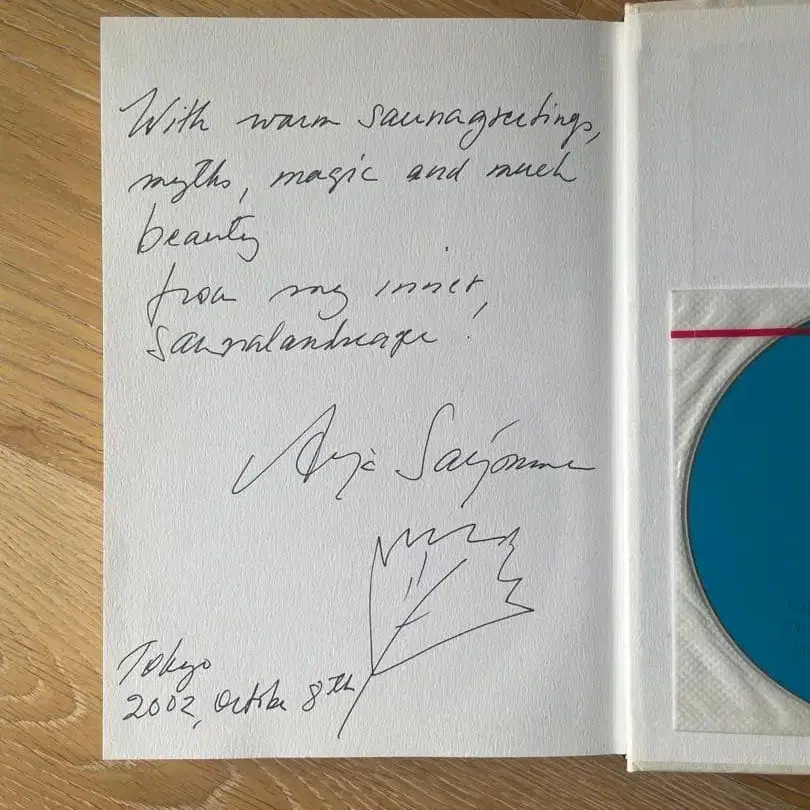 With warm saunagreetings,
myths, magic and much
beauty
from my inner,
saunalandscape!
Arja Saijonmaa
Tokyo
2002, October 8th